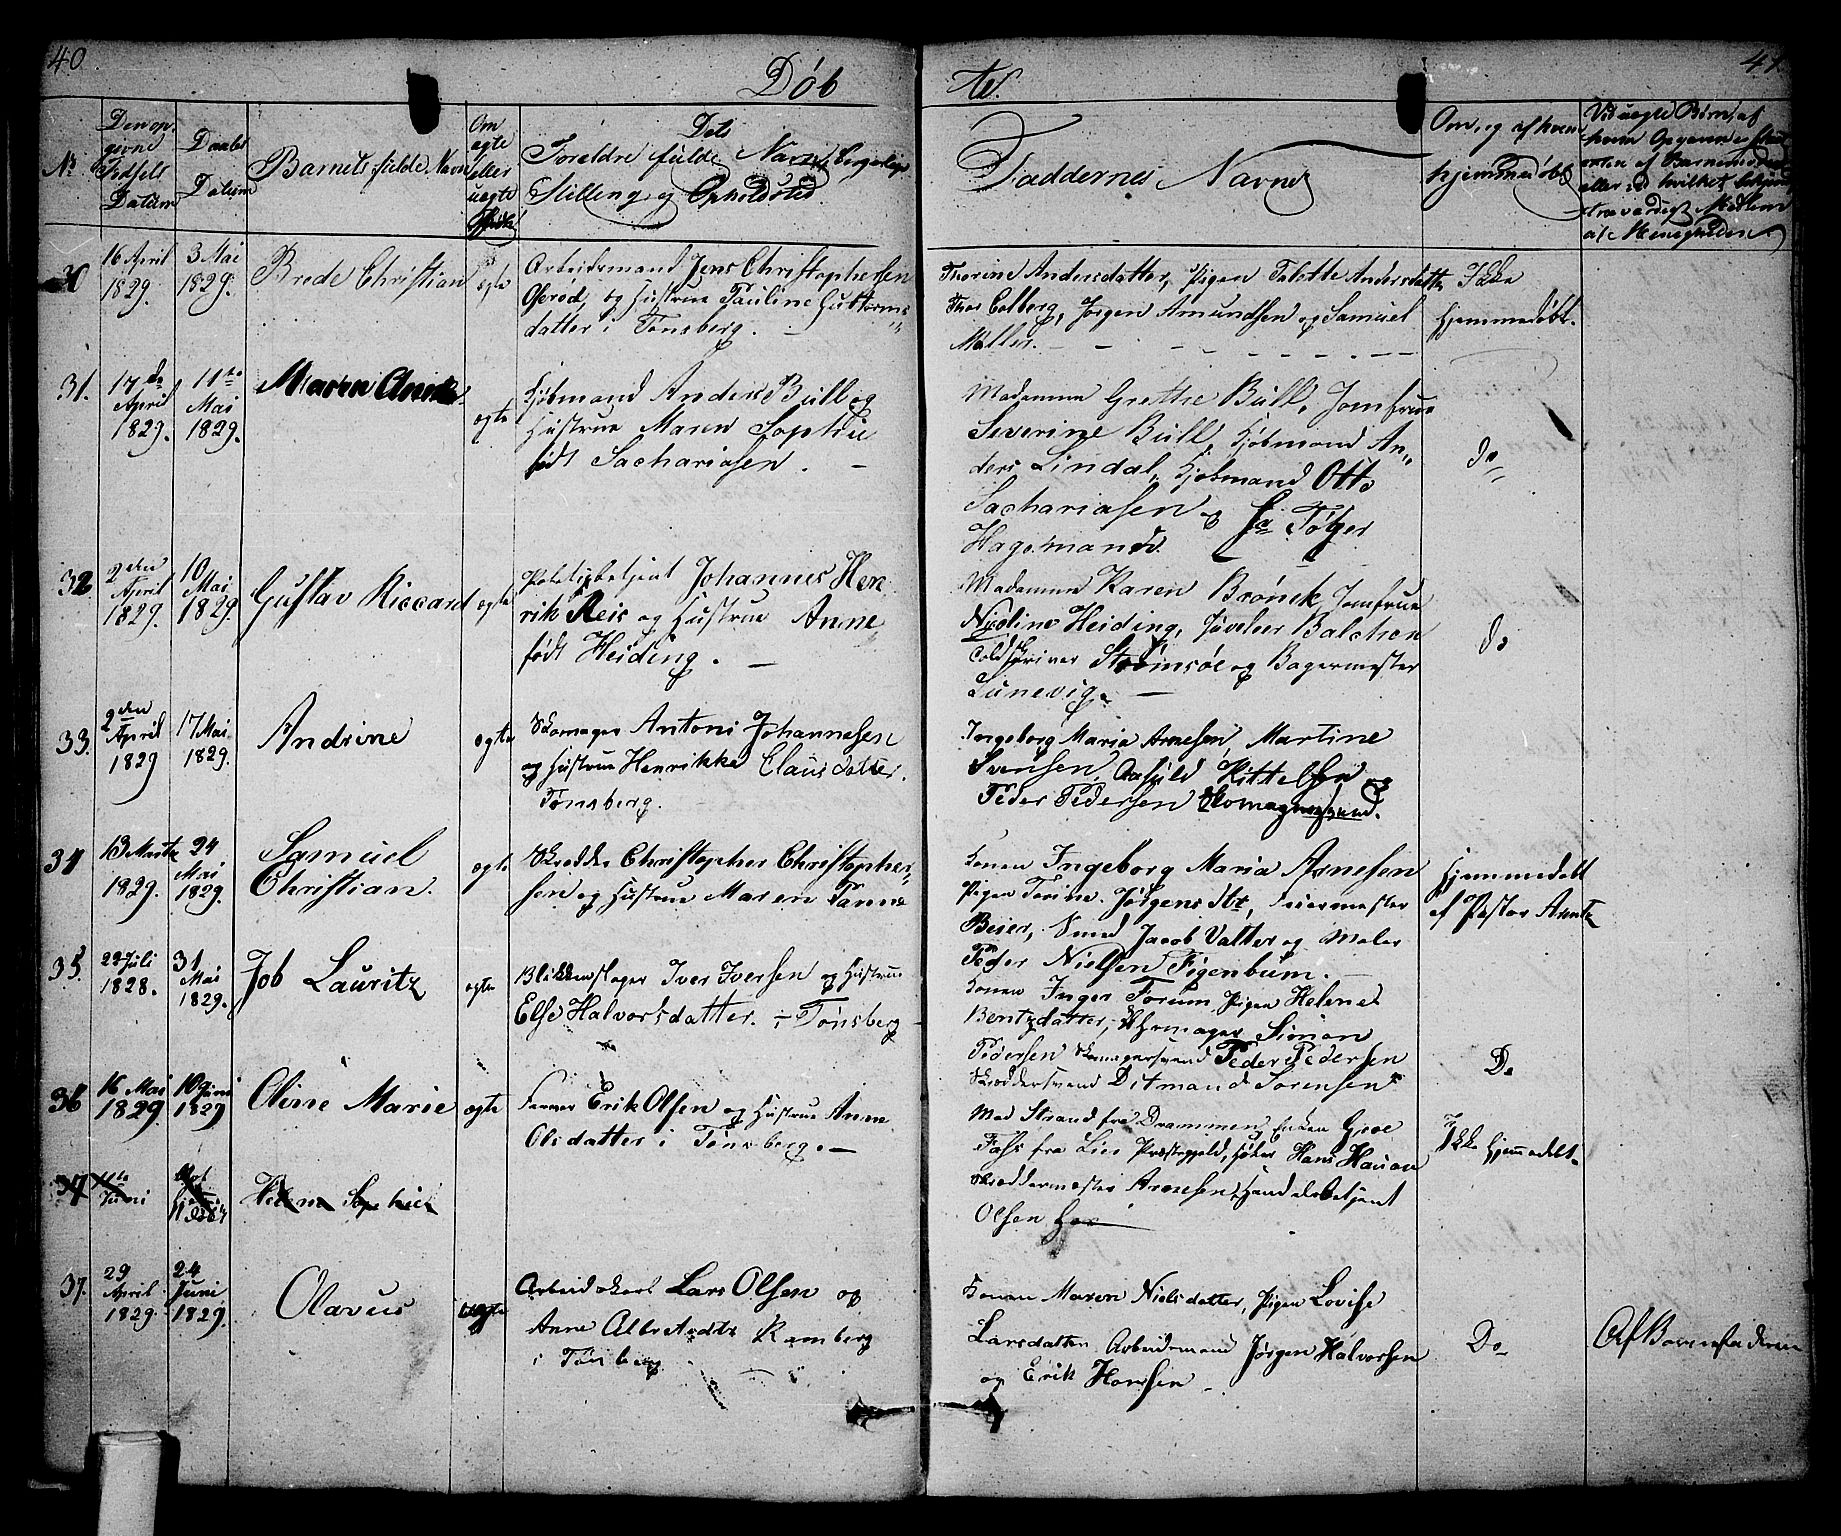 40
Døb
te.
41
No
Den op-
givne
Fødsels
Datum
Daabs
Datum
Barnets fulde Navn
Om
ægte
eller
uægte
Dets
Foreldre fulde Navne, borgerlige
Stilling og Opholdsted
Faddernes Navne
Om, og af hvem
hjemmedøbt
Ved uægte Børn, af
hvem Opgaven er skeet
enten af Barnemoderen
eller
troværdigt Medlem
af Menigheden
16 April
1829.
3 Mai
1829.
Brede Christian
ægte
Arbeidsmand Jens Christophersen
og Hustrue Pauline Guttorms
datter i Tønsberg.
Thorine Andersdatter, Pigen Andersdatter
Thor Colberg, Jørgen Amundsen og Samuel
Møller.
Ikke
hjemmedøbt.
31.
17de
April
1829.
11te
Mai
1829.
Maren
ægte
Kjøbmand Anders Bull og
Hustrue Maren Sophie
født Sachariasen.
Madamme Grethe Bull, Jomfrue
Severine Bull, Kjøbmand An-
ders Lindal, Kjøbmand Otto
Sachariasen og Sr Tølger
Hagemand.
do
32
2den
April
1829.
10
Mai
1829.
Gustav Riccard
ægte
Politibetjent Johannes Hen
rik Reis og Hustrue Anne
født Heiding.
Madamme Karen Brönck, Jomfrue
Nicoline Heiding, Juveleer Balchen
Toldskriver Strömsöe og Bagermester
Lunevig.
do
33.
2den
April
1829
17 Mai
1829.
Andrine
ægte
Skomager Antoni Johannesen
og Hustrue Henrikke Clausdatter.
Tønsberg.
Ingeborg Maria Arnesen, Martine
Svensen, Kittelsen og
Peder Pedersen Skomagersvend.
34
13 Marts
1829.
24
Mai
1829.
Samuel
Christian.
ægte
Skrædder Christopher Christopher-
sen og Hustrue Maren
Konen Ingeborg Maria Arnesen
Pigen Torine Jørgens Dtr,
Beier, Smed Jacob Valter og Maler
Peder Nielsen Figenbum.
Hjemmedøbt
af Pastor Arntz
35.
23 Juli
1828.
31
Mai
1829.
Job Lauritz
ægte
Blikkenslager Iver Iversen og Hustrue
Else Halvorsdatter. i Tønsberg
Konen Inger Forum, Pigen Helene
Bentzdatter, Uhrmager Simon
Pedersen Skomagersvend Peder Pedersen
Skræddersvend Ditmand Sørensen
Do
36
16 Mai
1829.
10 Juni
1829
Oline Marie
ægte
Farver Erik Olsen og Hustrue Anne
Olsdatter i Tønsberg.
Mad Strand fra Drammen, Enken
fra Lier Præstegjeld, Hans Hauan
Skræddermester Arnesen, Handelsbetjent
Olsen her
Ikke hjemmedøbt.
37
11te
Juni
Sophie
37.
29
April
1829.
24
Juni
1829.
Olavus
uægte
Arbeidskarl Lars Olsen og
Anne Ramberg
i Tønsberg
Konen Maren Nielsdatter, Pigen Lovise
Larsdatter Arbeidsmand Jørgen Halvorsen
og Erik Hansen
Do
Af Barnefaderen